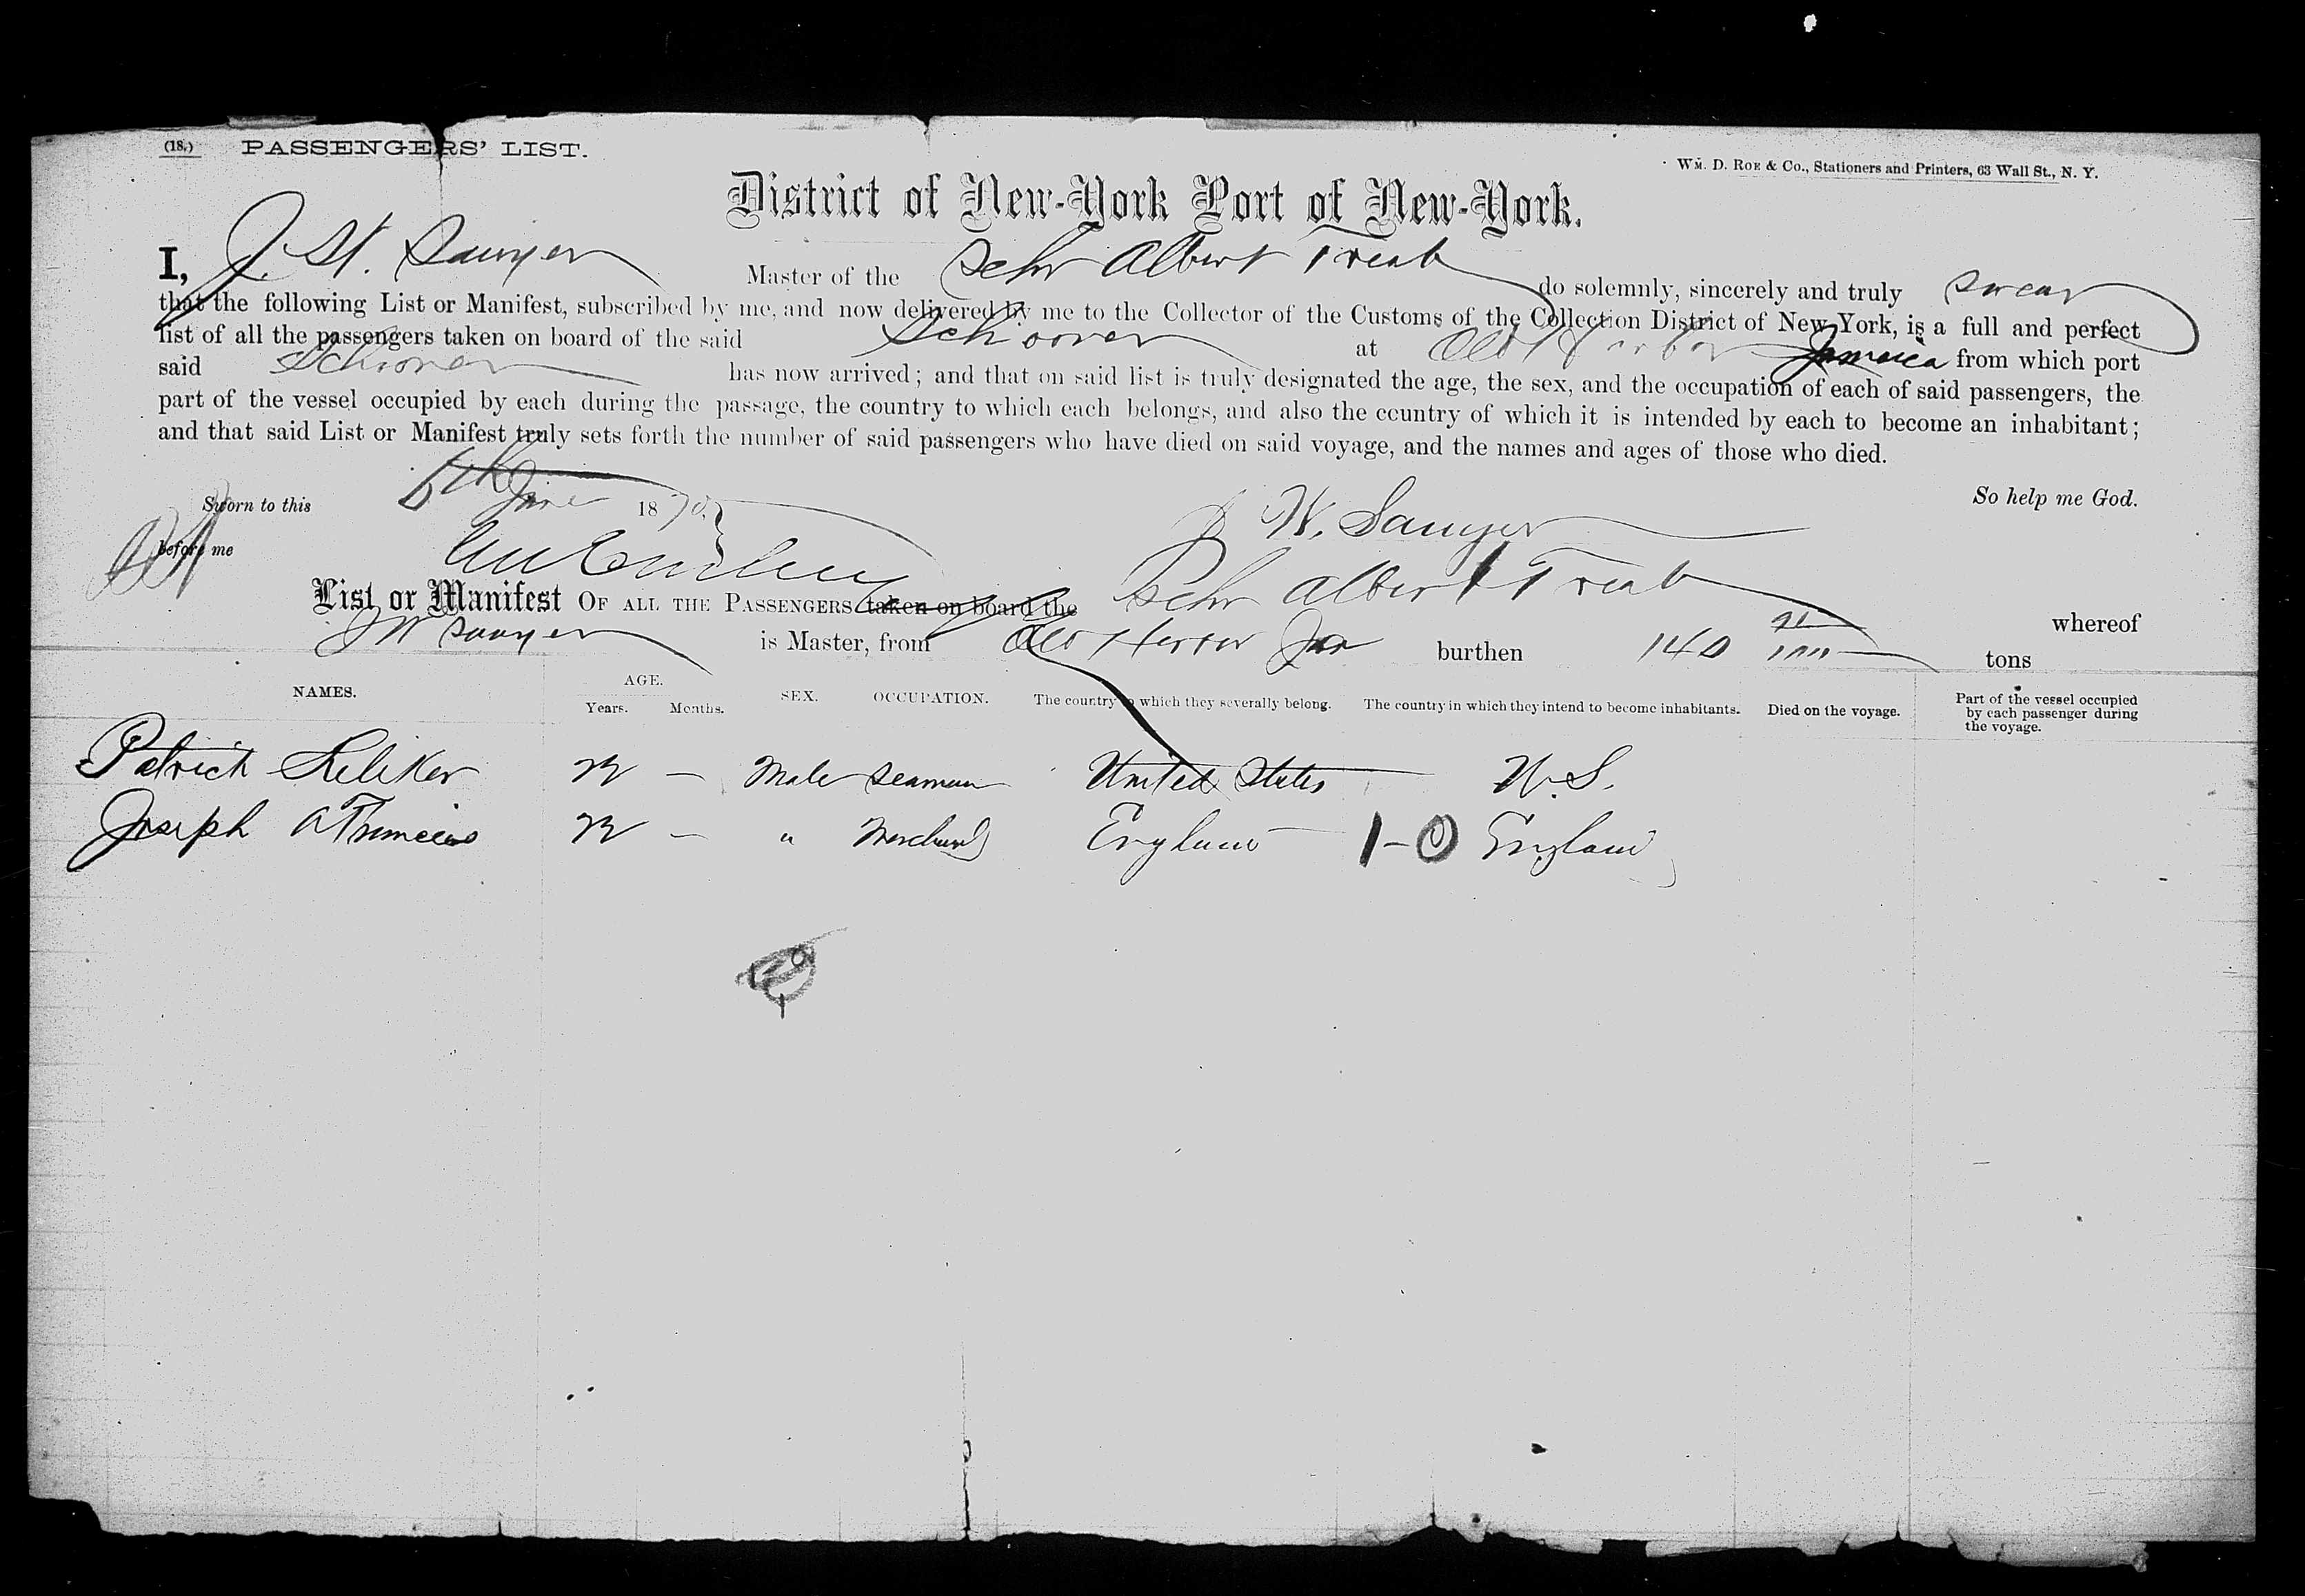 (18.) PASSENGERS' LIST.
Wm. D. Roe & Co., Stationers and Printers, 63 Wall St., N. Y.
District of New-York Port of New-York.
I, J. W. Sawyer Master of the Schr Albert Treat do solemnly, sincerely and truly swear
that the following List or Manifest, subscribed by me, and now delivered by me to the Collector of the Customs of the Collection District of New York, is a full and perfect
list of all the passengers taken on board of the said Schooner at Old Harbor Jamaica from which port
said Schooner has now arrived; and that on said list is truly designated the age, the sex, and the occupation of each of said passengers, the
part of the vessel occupied by each during the passage, the country to which each belongs, and also the country of which it is intended by each to become an inhabitant;
and that said List or Manifest truly sets forth the number of said passengers who have died on said voyage, and the names and ages of those who died.
Sworn to this June 1870. So help me God.
before me J W. Sawyer
List or Manifest OF ALL THE PASSENGERS taken on board the Schr Albert Treat whereof
J W Sawyer is Master, from Old Harbor Ja burthen 140 tons
NAMES. AGE. Years. Months. SEX. OCCUPATION. The country to which they severally belong. The country in which they intend to become inhabitants. Died on the voyage. Part of the vessel occupied by each passenger during the voyage.
Patrick — Male Seaman United States U.S.
Joseph — " Merchant England 1-0 England